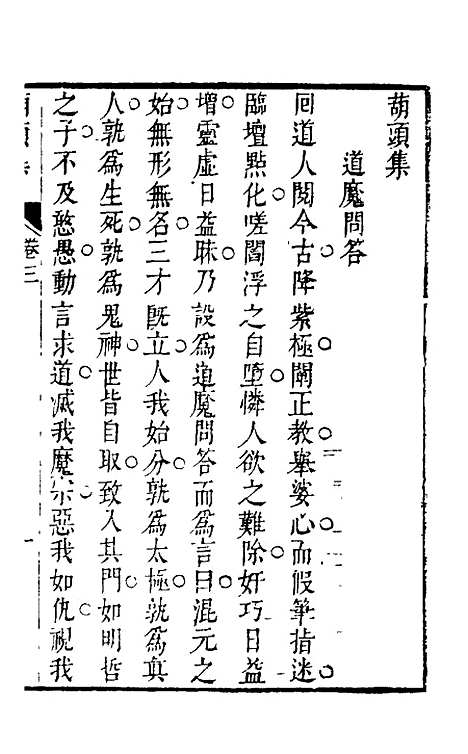 葫頭集
道魔問答
囘道人閱今古降紫極闡正教舉婆心而假筆指迷
臨壇點化嗟閻浮之自墮憐人欲之難除奸巧日益
增靈虛日益昧乃設爲道魔問答而爲言曰混元之
始無形無名三才旣立人我始分孰爲太極孰爲真
人孰爲生死孰爲鬼神世皆自取致入其門如明哲
之子不及憨愚動言求道滅我魔宗惡我如仇視我
卷三
一